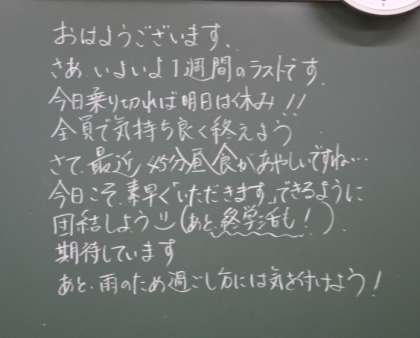 おはようございます、
さあ、いよいよ1週間のラストです。
今日乗り切れば明日は休み!!
全員で気持ち良く終えよう
さて、最近、45分昼食があやしいですね…
今日こそ、素早く「いただきます」できるように
団結しよう (あと、終学活も!)
期待しています
あと、雨のため過ごし方には気を付けよう!